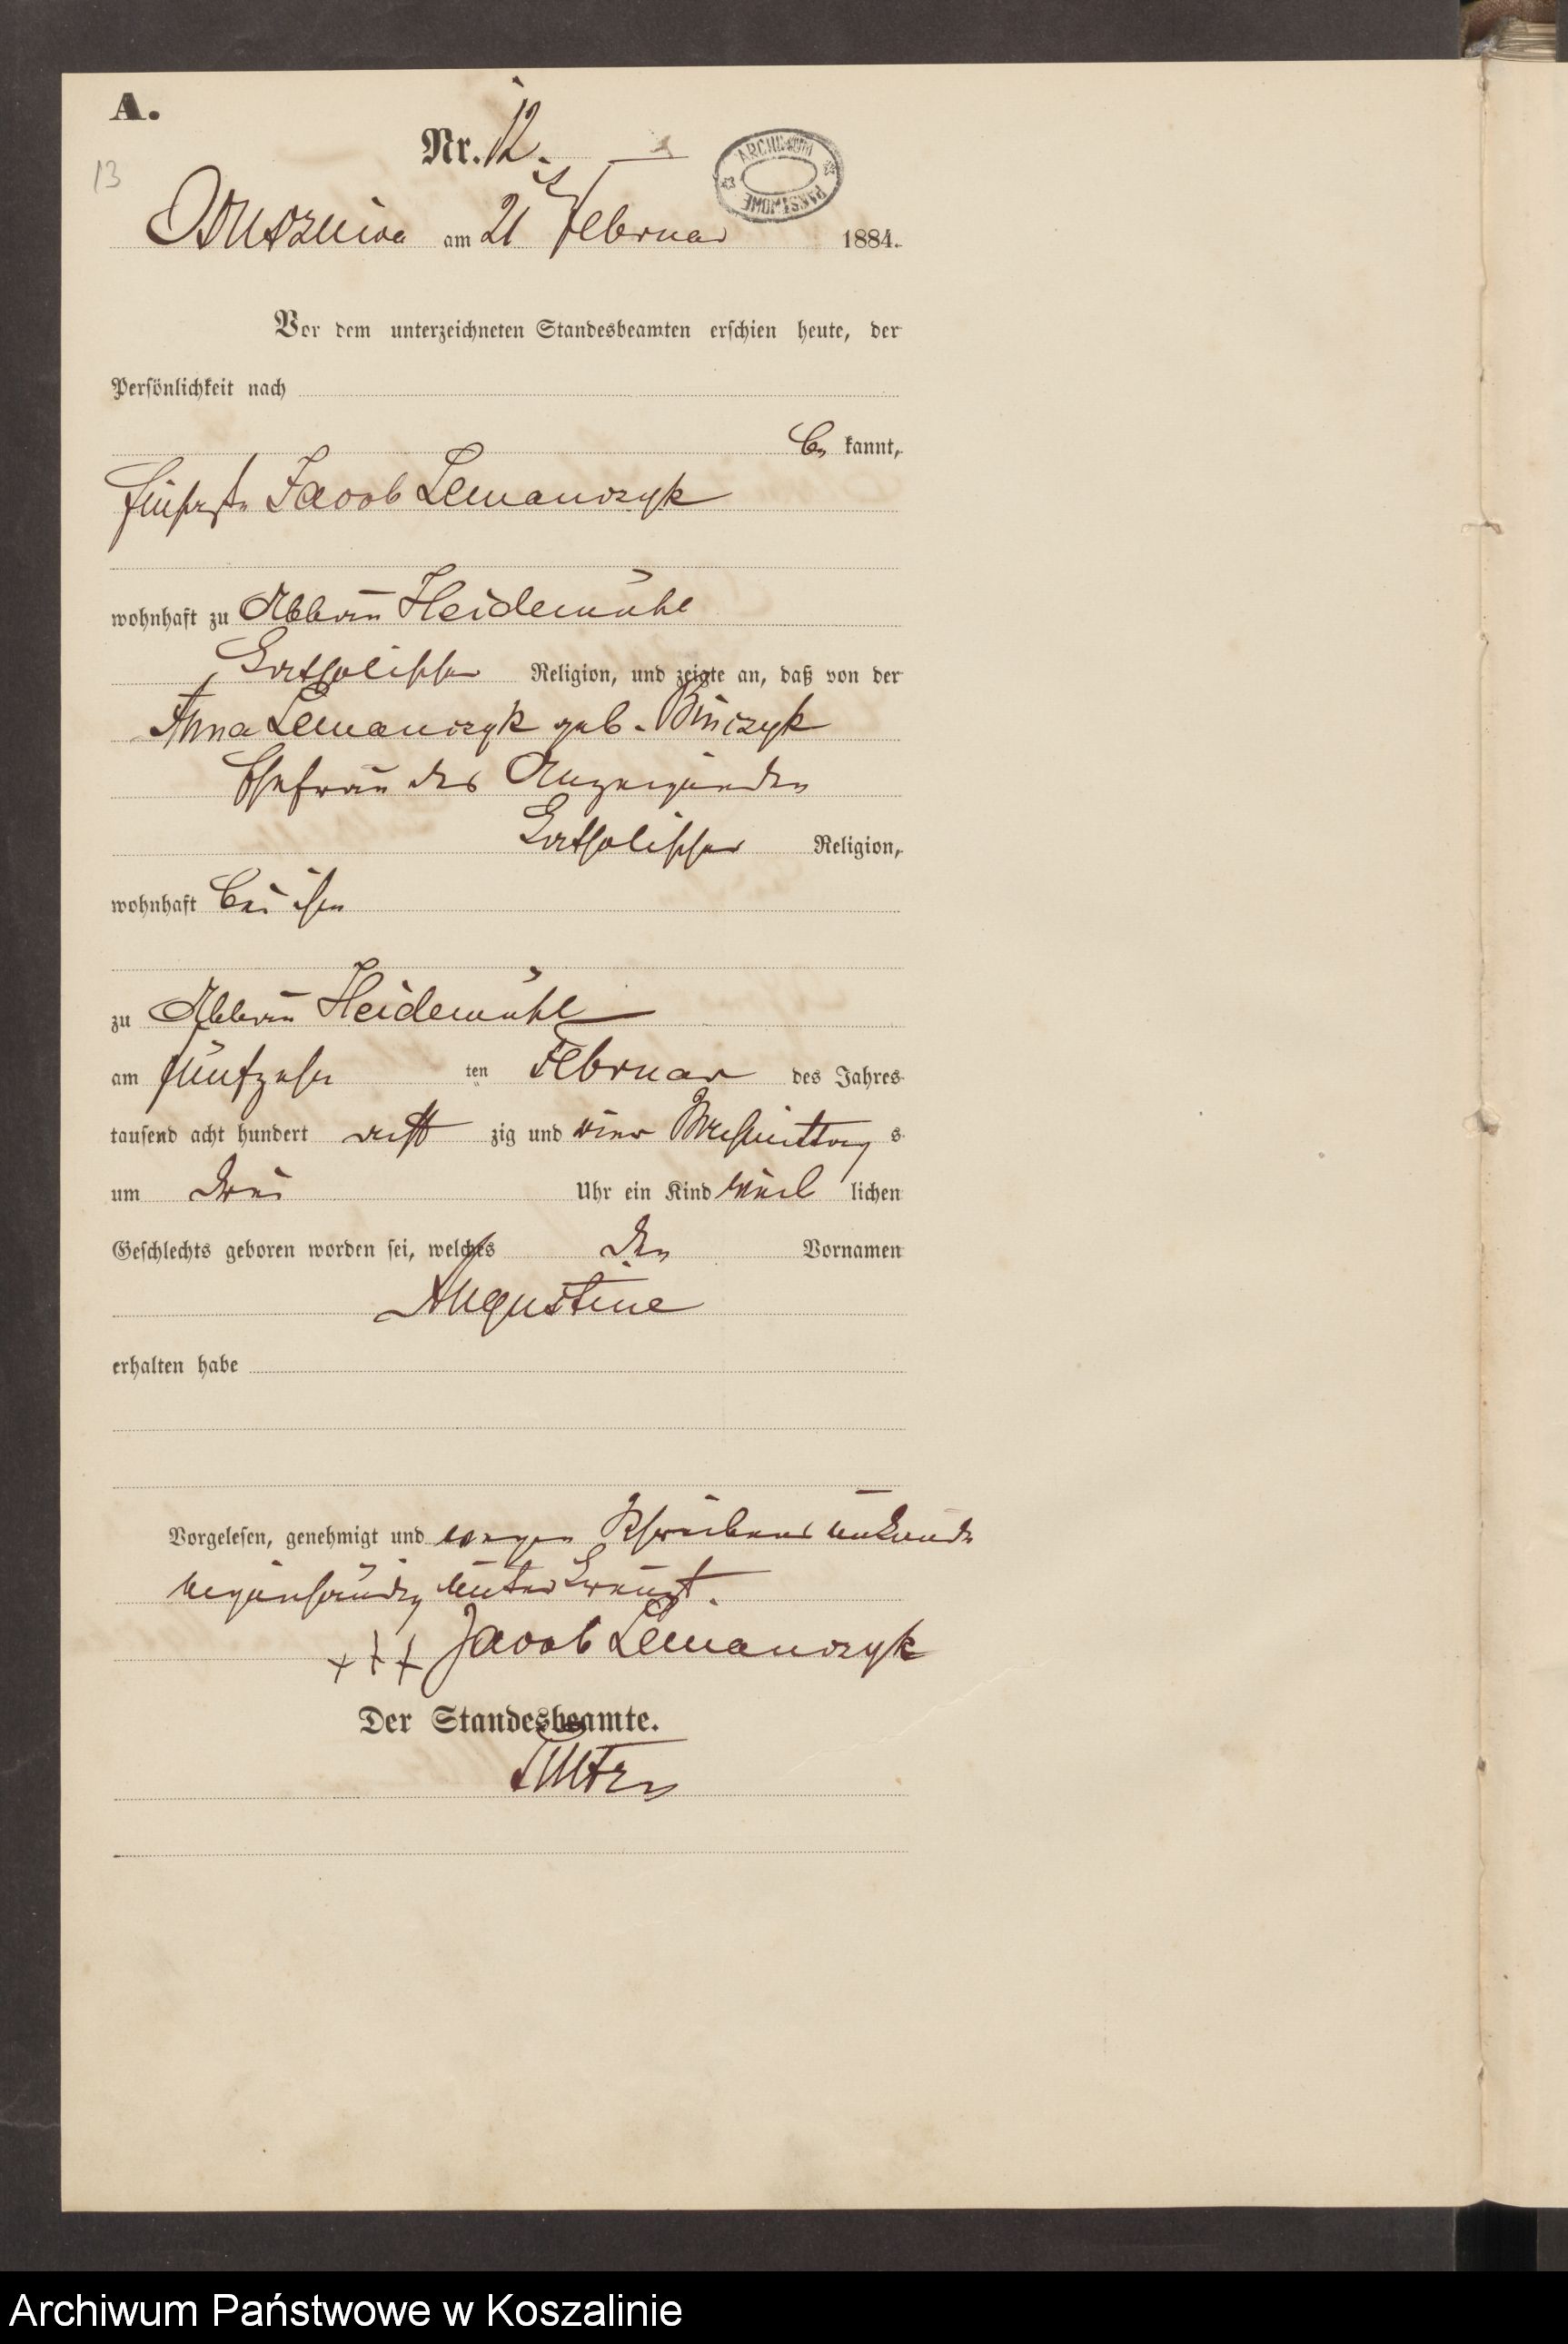 A.
Nr. 12.
13
ARCHIWUM PAŃSTWOWE
am 21 ten Februar 1884.
Vor dem unterzeichneten Standesbeamten erschien heute, der
Persönlichkeit nach
be kannt,
Jacob Lemanczyk
wohnhaft zu Abbau Heidemühl
katholischer Religion, und zeigte an, daß von der
Anna Lemanczyk geb. Binczyk
Ehefrau des Anzeigenden
katholischer Religion,
wohnhaft bei ihm
zu Abbau Heidemühl
am fünfzehn ten Februar des Jahres
tausend acht hundert acht zig und vier Nachmittag s
um drei Uhr ein Kind weib lichen
Geschlechts geboren worden sei, welches den Vornamen
Augustine
erhalten habe
Vorgelesen, genehmigt und wegen Schreibens unkunde
eigenhändig unterkreuzt.
+++ Jacob Lemanczyk
Der Standesbeamte.
Archiwum Państwowe w Koszalinie